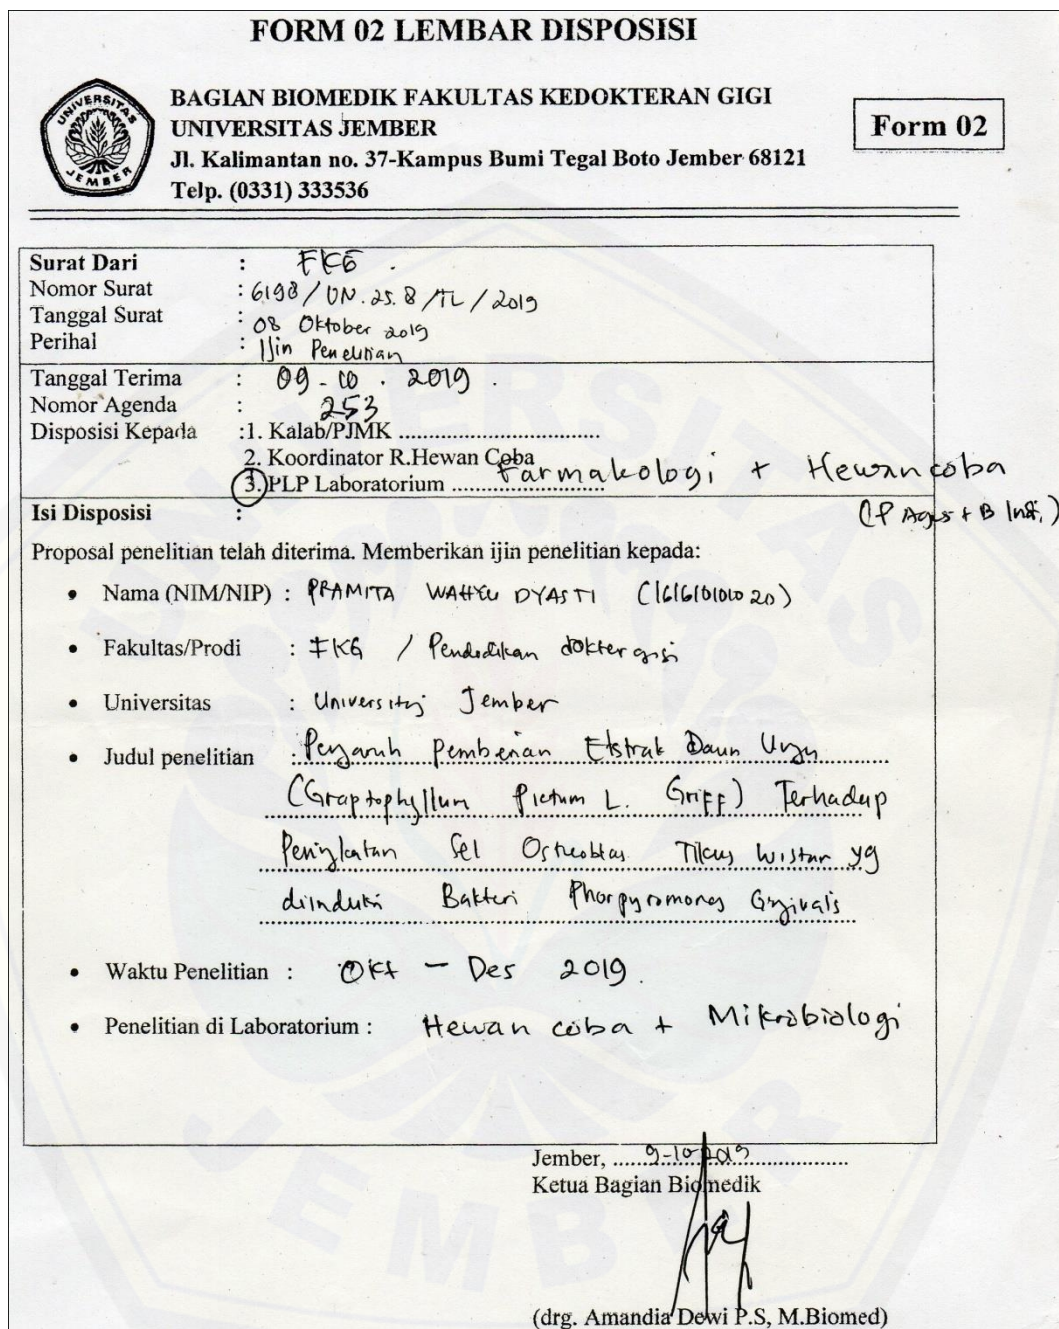 FORM 02 LEMBAR DISPOSISI
UNIVERSITAS JEMBER
BAGIAN BIOMEDIK FAKULTAS KEDOKTERAN GIGI
UNIVERSITAS JEMBER
Jl. Kalimantan no. 37-Kampus Bumi Tegal Boto Jember 68121
Telp. (0331) 333536
Form 02
Surat Dari : FKG .
Nomor Surat : 6198/UN.25.8/TL/2019
Tanggal Surat : 08 Oktober 2019
Perihal : Ijin Penelitian
Tanggal Terima : 09 - 10 . 2019 .
Nomor Agenda : 253
Disposisi Kepada :1. Kalab/PJMK ..............................
2. Koordinator R.Hewan Coba
3. PLP Laboratorium ...................... Farmakologi + Hewan coba
Isi Disposisi :
Proposal penelitian telah diterima. Memberikan ijin penelitian kepada:
• Nama (NIM/NIP) : PRAMITA WAHYU DYASTI (161610101020)
• Fakultas/Prodi : FKG / Pendidikan dokter gigi
• Universitas : Universitas Jember
• Judul penelitian : Pengaruh Pemberian Ekstrak Daun Ungu
(Graptophyllum Pictum L. Griff) Terhadap
Peningkatan Sel Osteoblas Tikus Wistar yg
diinduksi Bakteri Phorpyromonas Gingivalis
• Waktu Penelitian : Okt - Des 2019.
• Penelitian di Laboratorium : Hewan coba + Mikrobiologi
Jember, ......9-10-2019..............
Ketua Bagian Biomedik
(drg. Amandia Dewi P.S, M.Biomed)
UNIVERSITAS
JEMBER